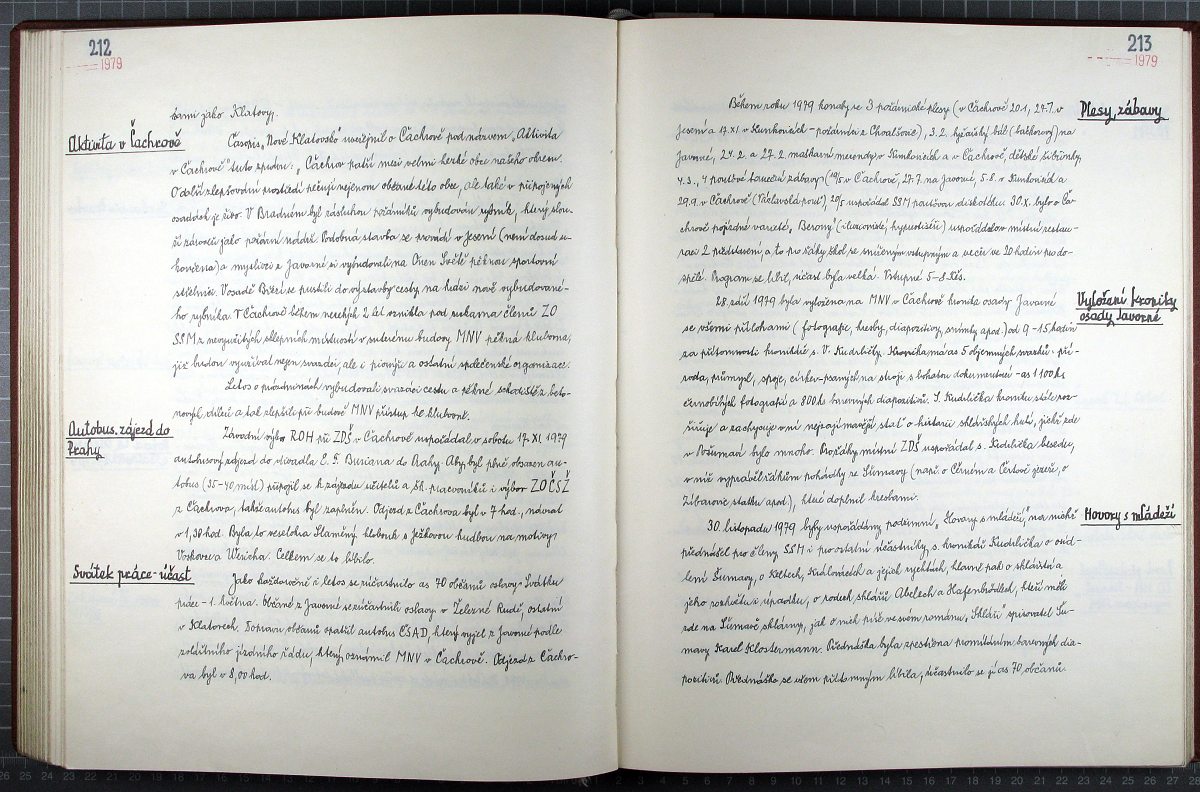 212
1979
bami jako Klatovy.
Aktivita v Čachrově
Časopis „Nové Klatovsko" uveřejnil o Čachrově pod názvem „Aktivita
v Čachrově" tuto zprávu: „Čachrov patří mezi velmi hezké obce našeho okresu.
O další zlepšování prostředí pečují nejenom občané této obce, ale také v připojených
osadách je živo. V Bradném byl zásluhou požárníků vybudován rybník, který slou-
ží zároveň jako požární nádrž. Podobná stavba se provádí v Jesení (není dosud u-
končena) a myslivci z Javorné si vybudovali na Onen Světě pěknou sportovní
střelnici. V osadě Březí se pustili do výstavby cesty na hrázi nově vybudované-
ho rybníka. V Čachrově během necelých 2 let vznikla pod rukama členů ZO
SSM z nevyužitých sklepních místností v suterénu budovy MNV pěkná klubovna,
již budou využívat nejen svazáci, ale i pionýři a ostatní společenské organizace.
Letos o prázdninách vybudovali svazáci cestu a pěkné schodiště z beto-
nových dílců a tak zlepšili při budově MNV přístup ke klubovně.
Autobus. zájezd do
Prahy
Závodní výbor ROH při ZDŠ v Čachrově uspořádal v sobotu 17. XI. 1979
autobusový zájezd do divadla E. F. Buriana do Prahy. Aby byl plně obsazen au-
tobus (35-40 míst) připojil se k zájezdu učitelů a šk. pracovníků i výbor ZO ČSŽ
z Čachrova, takže autobus byl zaplněn. Odjezd z Čachrova byl v 7 hod., návrat
v 1,30 hod. Byla to veselohra Slaměný klobouk s Ježkovou hudbou na motivy
Voskovce a Wericha. Celkem se to líbilo.
Svátek práce - účast
Jako každoročně i letos se zúčastnilo as 70 občanů oslavy Svátku
práce - 1. května. Občané z Javorné se zúčastnili oslavy v Železné Rudě, ostatní
v Klatovech. Dopravu občanů opatřil autobus ČSAD, který vyjel z Javorné podle
zvláštního jízdního řádu, který oznámil MNV v Čachrově. Odjezd z Čachro-
va byl v 8,00 hod.
213
1979
Plesy, zábavy
Během roku 1979 konaly se 3 požárnické plesy (v Čachrově 20.1., 27.1. v
Jesení a 17. XI. v Kunkovicích - požárníci z Chvalšovic), 3.2. lyžařský bál (baťkorový) na
Javorné, 24.2. a 27.2. maškarní merendy v Kunkovicích a v Čachrově, dětské šibřinky
4.3., 4 pouťové taneční zábavy (19/5 v Čachrově, 27.7. na Javorné, 5.8. v Kunkovicích a
29.9. v Čachrově (Václavská pouť), 20/5 uspořádal SSM pouťovou diskotéku. 30.X. bylo o Ča-
chrově pojízdné varieté „Berony" (iluzionisté, hypnotisté) uspořádalo v místní restau-
raci 2 představení, a to pro žáky škol se sníženým vstupným a večer ve 20 hodin pro do-
spělé. Program se líbil, účast byla velká. Vstupné 5-8 Kčs.
Vyložení kroniky
osady Javorné
28. září 1979 byla vyložena na MNV v Čachrově kronika osady Javorné
se všemi přílohami (fotografie, kresby, diapozitivy, snímky apod.) od 9-15 hodin
za přítomnosti kronikáře s. V. Kudrličky. Kronika má as 5 objemných svazků: pří-
roda, průmysl, spoje, církev - psaných na stroji s bohatou dokumentací - as 1100 ks
černobílých fotografií a 800 ks barevných diapozitivů. S. Kudrlička kroniku stále roz-
šiřuje a zachycuje v ní nejzajímavější stať o historii sklářských hutí, jichž zde
v Pošumaví bylo mnoho. Pro žáky místní ZDŠ uspořádal s. Kudrlička besedu,
v níž vyprávěl žákům pohádky ze Šumavy (např. o Černém a Čertově jezeře, o
Zibarově statku apod.), které doplnil kresbami.
Hovory s mládeží
30. listopadu 1979 byly uspořádány podzimní „Hovory s mládeží", na nichž
přednášel pro členy SSM i pro ostatní účastníky, s. kronikář Kudrlička o osíd-
lení Šumavy, o Keltech, Královácích a jejich rychtách, hlavně pak o sklářství a
jeho rozkvětu i úpadku, o rodech sklářů Abelech a Hafenbrädlech, kteří měli
zde na Šumavě sklárny, jak o nich píše ve svém románu „Skláři" spisovatel Šu-
mavy Karel Klostermann. Přednáška byla zpestřena promítáním barevných dia-
pozitivů. Přednáška se všem přítomným líbila, účastnilo se jí as 70 občanů.